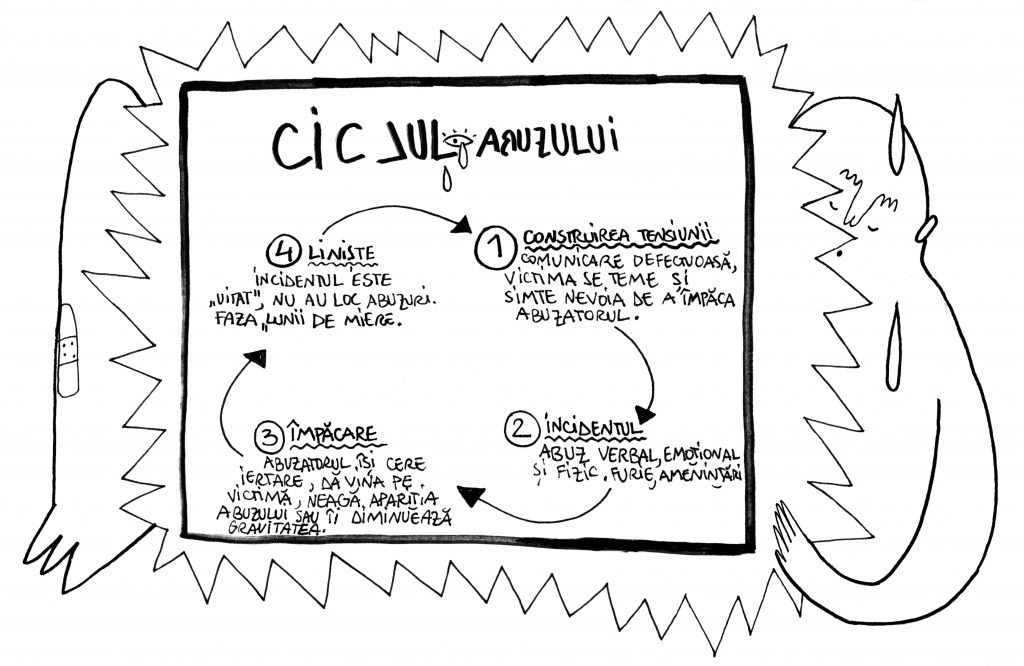 CICLUL ABUZULUI
1 CONSTRUIREA TENSIUNII
COMUNICARE DEFECTUOASĂ,
VICTIMA SE TEME ȘI
SIMTE NEVOIA DE A ÎMPĂCA
ABUZATORUL.
2 INCIDENTUL
ABUZ VERBAL, EMOȚIONAL
ȘI FIZIC. FURIE, AMENINȚĂRI
3 ÎMPĂCARE
ABUZATORUL ÎȘI CERE
IERTARE, DĂ VINA PE
VICTIMĂ, NEAGĂ APARIȚIA
ABUZULUI SAU ÎI DIMINUEAZĂ
GRAVITATEA.
4 LINIȘTE
INCIDENTUL ESTE
„UITAT", NU AU LOC ABUZURI.
FAZA „LUNII DE MIERE.